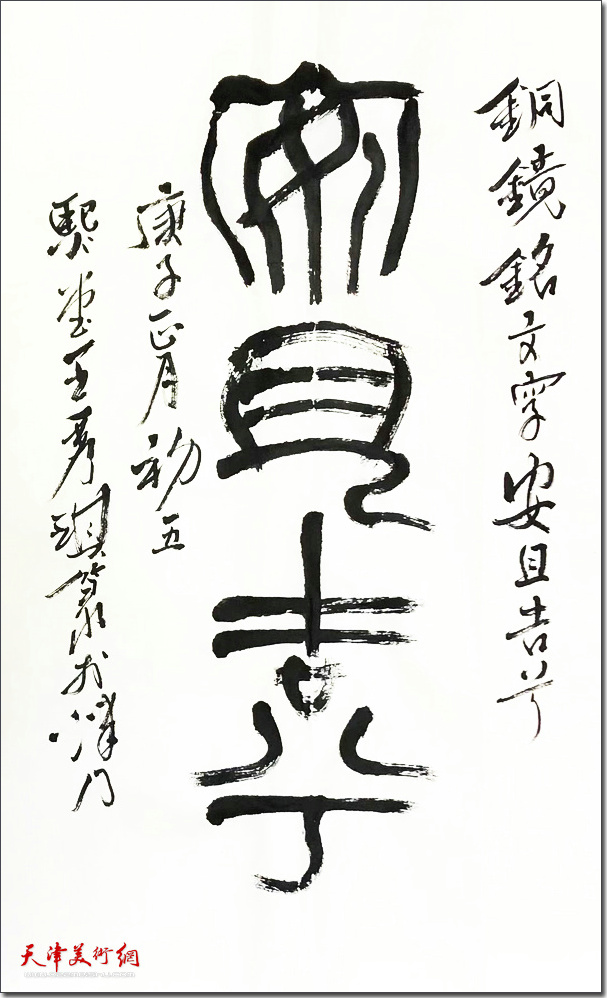 銅鏡銘文字安且吉兮
安且吉兮
庚子正月初五
熙堂王彦琪篆於津門
天津美術網